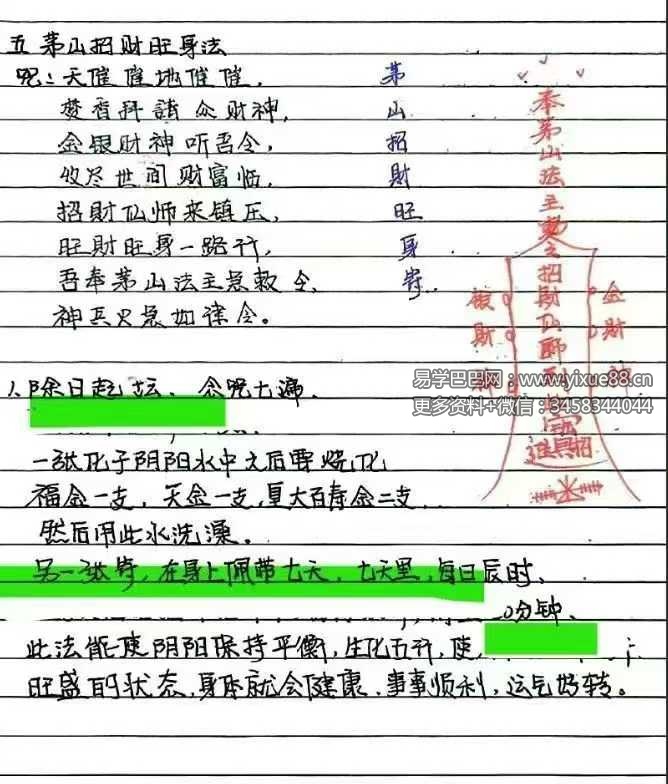 五 茅山招财旺身法
咒：天催催地催催，
焚香拜請众财神，
金银财神听吾令，
收尽世间财富临，
招財仙师来镇压，
旺財旺身一路行，
吾奉茅山法主急敕令，
神兵火急如律令。
茅山招財旺身符
奉茅山法主敕令招財仙师到此
進寶招財
银財神
金財神
易学巴巴网：www.yixue88.cn
更多资料+微信：3458344044
1、除日起坛、念咒七遍、
一张化于阴阳水中之后要烧化
福金一支，天金一支，更大百寿金二支
然后用此水洗澡。
另一张符，在身上佩带七天，七天里，每日辰时、
0分钟、
此法能使阴阳保持平衡，生化五行，使
旺盛的状态，身体就会健康、事事顺利，运气好转。